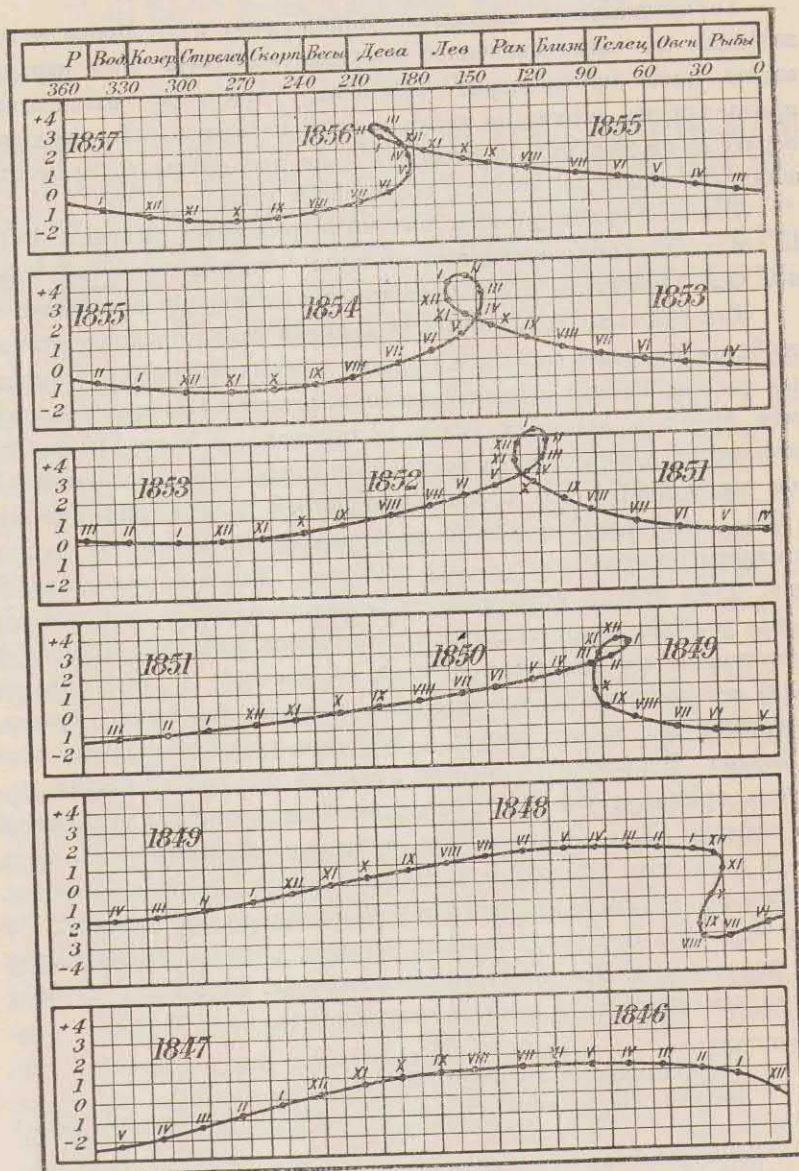 Р Вод. Козер. Стрелец Скорп. Весы Дева Лев Рак Близн. Телец Овен Рыбы
360 330 300 270 240 210 180 150 120 90 60 30 0
+4
3
2
1
0
1
-2
1857 1856 1855
I XII XI X IX VIII VII VI V IV II I III XII XI X IX VIII VII VI V IV III
+4
3
2
1
0
1
-2
1855 1854 1853
II I XII XI X IX VIII VII VI V XI XII I II III IV X IX VIII VII VI V IV
+4
3
2
1
0
1
-2
1853 1852 1851
III II I XII XI X IX VIII VII VI V XI XII I II III IV X IX VIII VII VI V IV
+4
3
2
1
0
1
-2
1851 1850 1849
III II I XII XI X IX VIII VII VI V IV III XI XII I II X IX VIII VII VI V
+4
3
2
1
0
1
2
3
-4
1849 1848
IV III II I XII XI X IX VIII VII VI V IV III II I XII XI X IX VIII VII VI
+4
3
2
1
0
1
-2
1847 1846
V IV III II I XII XI X IX VIII VII VI V IV III II I XII